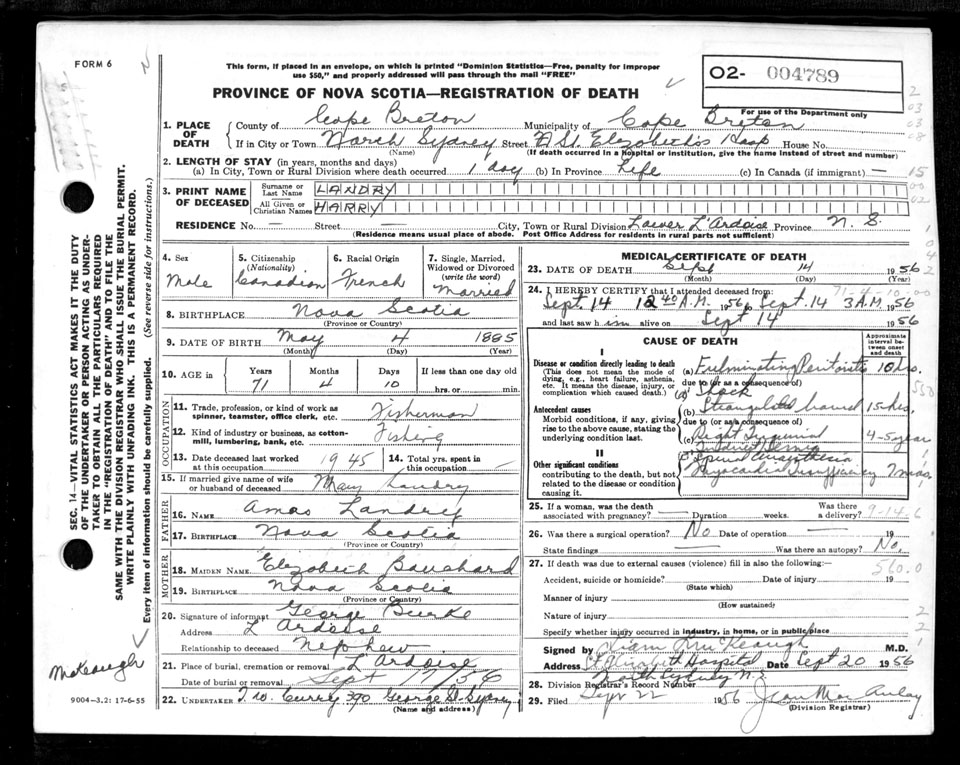 FORM 6
This form, if placed in an envelope, on which is printed "Dominion Statistics—Free, penalty for improper
use $50," and properly addressed will pass through the mail "FREE"
02- 004789
For use of the Department only
PROVINCE OF NOVA SCOTIA—REGISTRATION OF DEATH
1. PLACE OF DEATH
County of Cape Breton Municipality of Cape Breton
If in City or Town North Sydney Street St. Elizabeth's Hosp House No.
(Name) (If death occurred in a hospital or institution, give the name instead of street and number)
2. LENGTH OF STAY (in years, months and days)
(a) In City, Town or Rural Division where death occurred 1 day (b) In Province Life (c) In Canada (if immigrant) —
3. PRINT NAME OF DECEASED
Surname or Last Name LANDRY
All Given or Christian Names HARRY
RESIDENCE No. — Street — City, Town or Rural Division Lower L'Ardoise Province N. S.
(Residence means usual place of abode. Post Office Address for residents in rural parts not sufficient)
4. Sex Male
5. Citizenship (Nationality) Canadian
6. Racial Origin French
7. Single, Married, Widowed or Divorced (write the word) Married
8. BIRTHPLACE Nova Scotia
(Province or Country)
9. DATE OF BIRTH May 4 1885
(Month) (Day) (Year)
10. AGE in Years 71 Months 4 Days 10 If less than one day old hrs. or min.
OCCUPATION
11. Trade, profession, or kind of work as spinner, teamster, office clerk, etc. Fisherman
12. Kind of industry or business, as cotton-mill, lumbering, bank, etc. Fishing
13. Date deceased last worked at this occupation 1945
14. Total yrs. spent in this occupation
15. If married give name of wife or husband of deceased Mary Landry
FATHER
16. NAME Amos Landry
17. BIRTHPLACE Nova Scotia
(Province or Country)
MOTHER
18. MAIDEN NAME Elizabeth Bouchard
19. BIRTHPLACE Nova Scotia
(Province or Country)
20. Signature of informant George Burke
Address L'Ardoise
Relationship to deceased Nephew
21. Place of burial, cremation or removal L'Ardoise
Date of burial or removal Sept 17/56
22. UNDERTAKER T. W. Curry 390 George St. Sydney
(Name and address)
MEDICAL CERTIFICATE OF DEATH
23. DATE OF DEATH Sept 14 1956
(Month) (Day) (Year)
24. I HEREBY CERTIFY that I attended deceased from:
71-4-10-00
Sept. 14 12 40 A.M. 1956, Sept. 14 3 A.M. 1956
and last saw him alive on Sept 14 1956
CAUSE OF DEATH
Approximate interval between onset and death
I
Disease or condition directly leading to death
(This does not mean the mode of dying, e.g., heart failure, asthenia, etc. It means the disease, injury, or complication which caused death.)
(a) Fulminating 10 hrs.
due to (or as a consequence of)
Shock
Antecedent causes
Morbid conditions, if any, giving rise to the above cause, stating the underlying condition last.
(b) Strangulated bowel 15 hrs
due to (or as a consequence of)
(c) Right Inguinal 4-5 years
II
Other significant conditions
contributing to the death, but not related to the disease or condition causing it.
Spinal Anaesthesia
Myocardial Insufficiency
25. If a woman, was the death associated with pregnancy? Duration weeks. Was there a delivery?
9-14-6
26. Was there a surgical operation? No Date of operation 19
State findings Was there an autopsy? No.
27. If death was due to external causes (violence) fill in also the following:—
560.0
Accident, suicide or homicide? Date of injury 19
(State which)
Manner of injury
(How sustained)
Nature of injury
Specify whether injury occurred in industry, in home, or in public place
Signed by McKeough M.D.
Address St. Elizabeth Hospital Date Sept 20 1956
North Sydney N.S.
28. Division Registrar's Record Number
29. Filed Sept 22 1956 Jean MacAulay
(Division Registrar)
SEC. 14—VITAL STATISTICS ACT MAKES IT THE DUTY
OF THE UNDERTAKER OR PERSON ACTING AS UNDER-
TAKER TO OBTAIN ALL THE PARTICULARS REQUIRED
IN THE "REGISTRATION OF DEATH" AND TO FILE THE
SAME WITH THE DIVISION REGISTRAR WHO SHALL ISSUE THE BURIAL PERMIT.
WRITE PLAINLY WITH UNFADING INK. THIS IS A PERMANENT RECORD.
Every item of information should be carefully supplied. (See reverse side for instructions.)
McKeough
9004—3.2: 17-6-55